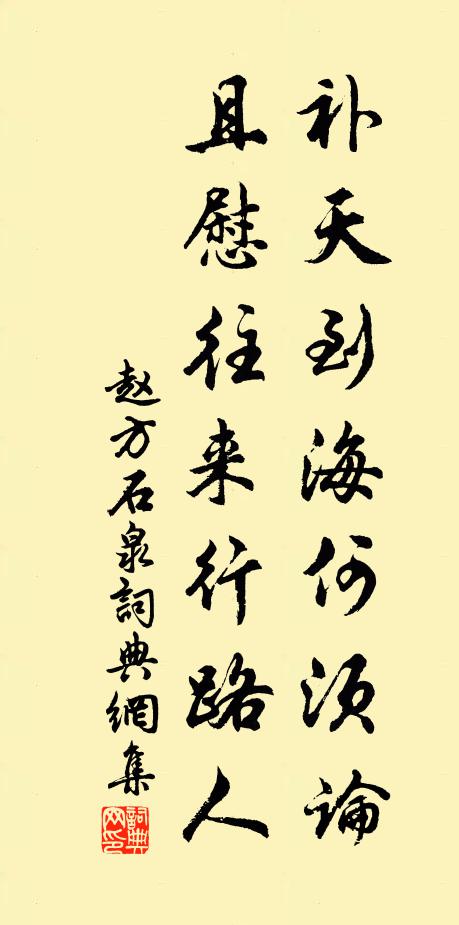 补天到海何须论
且慰往来行路人
赵方石泉詞典網集
詞典网印